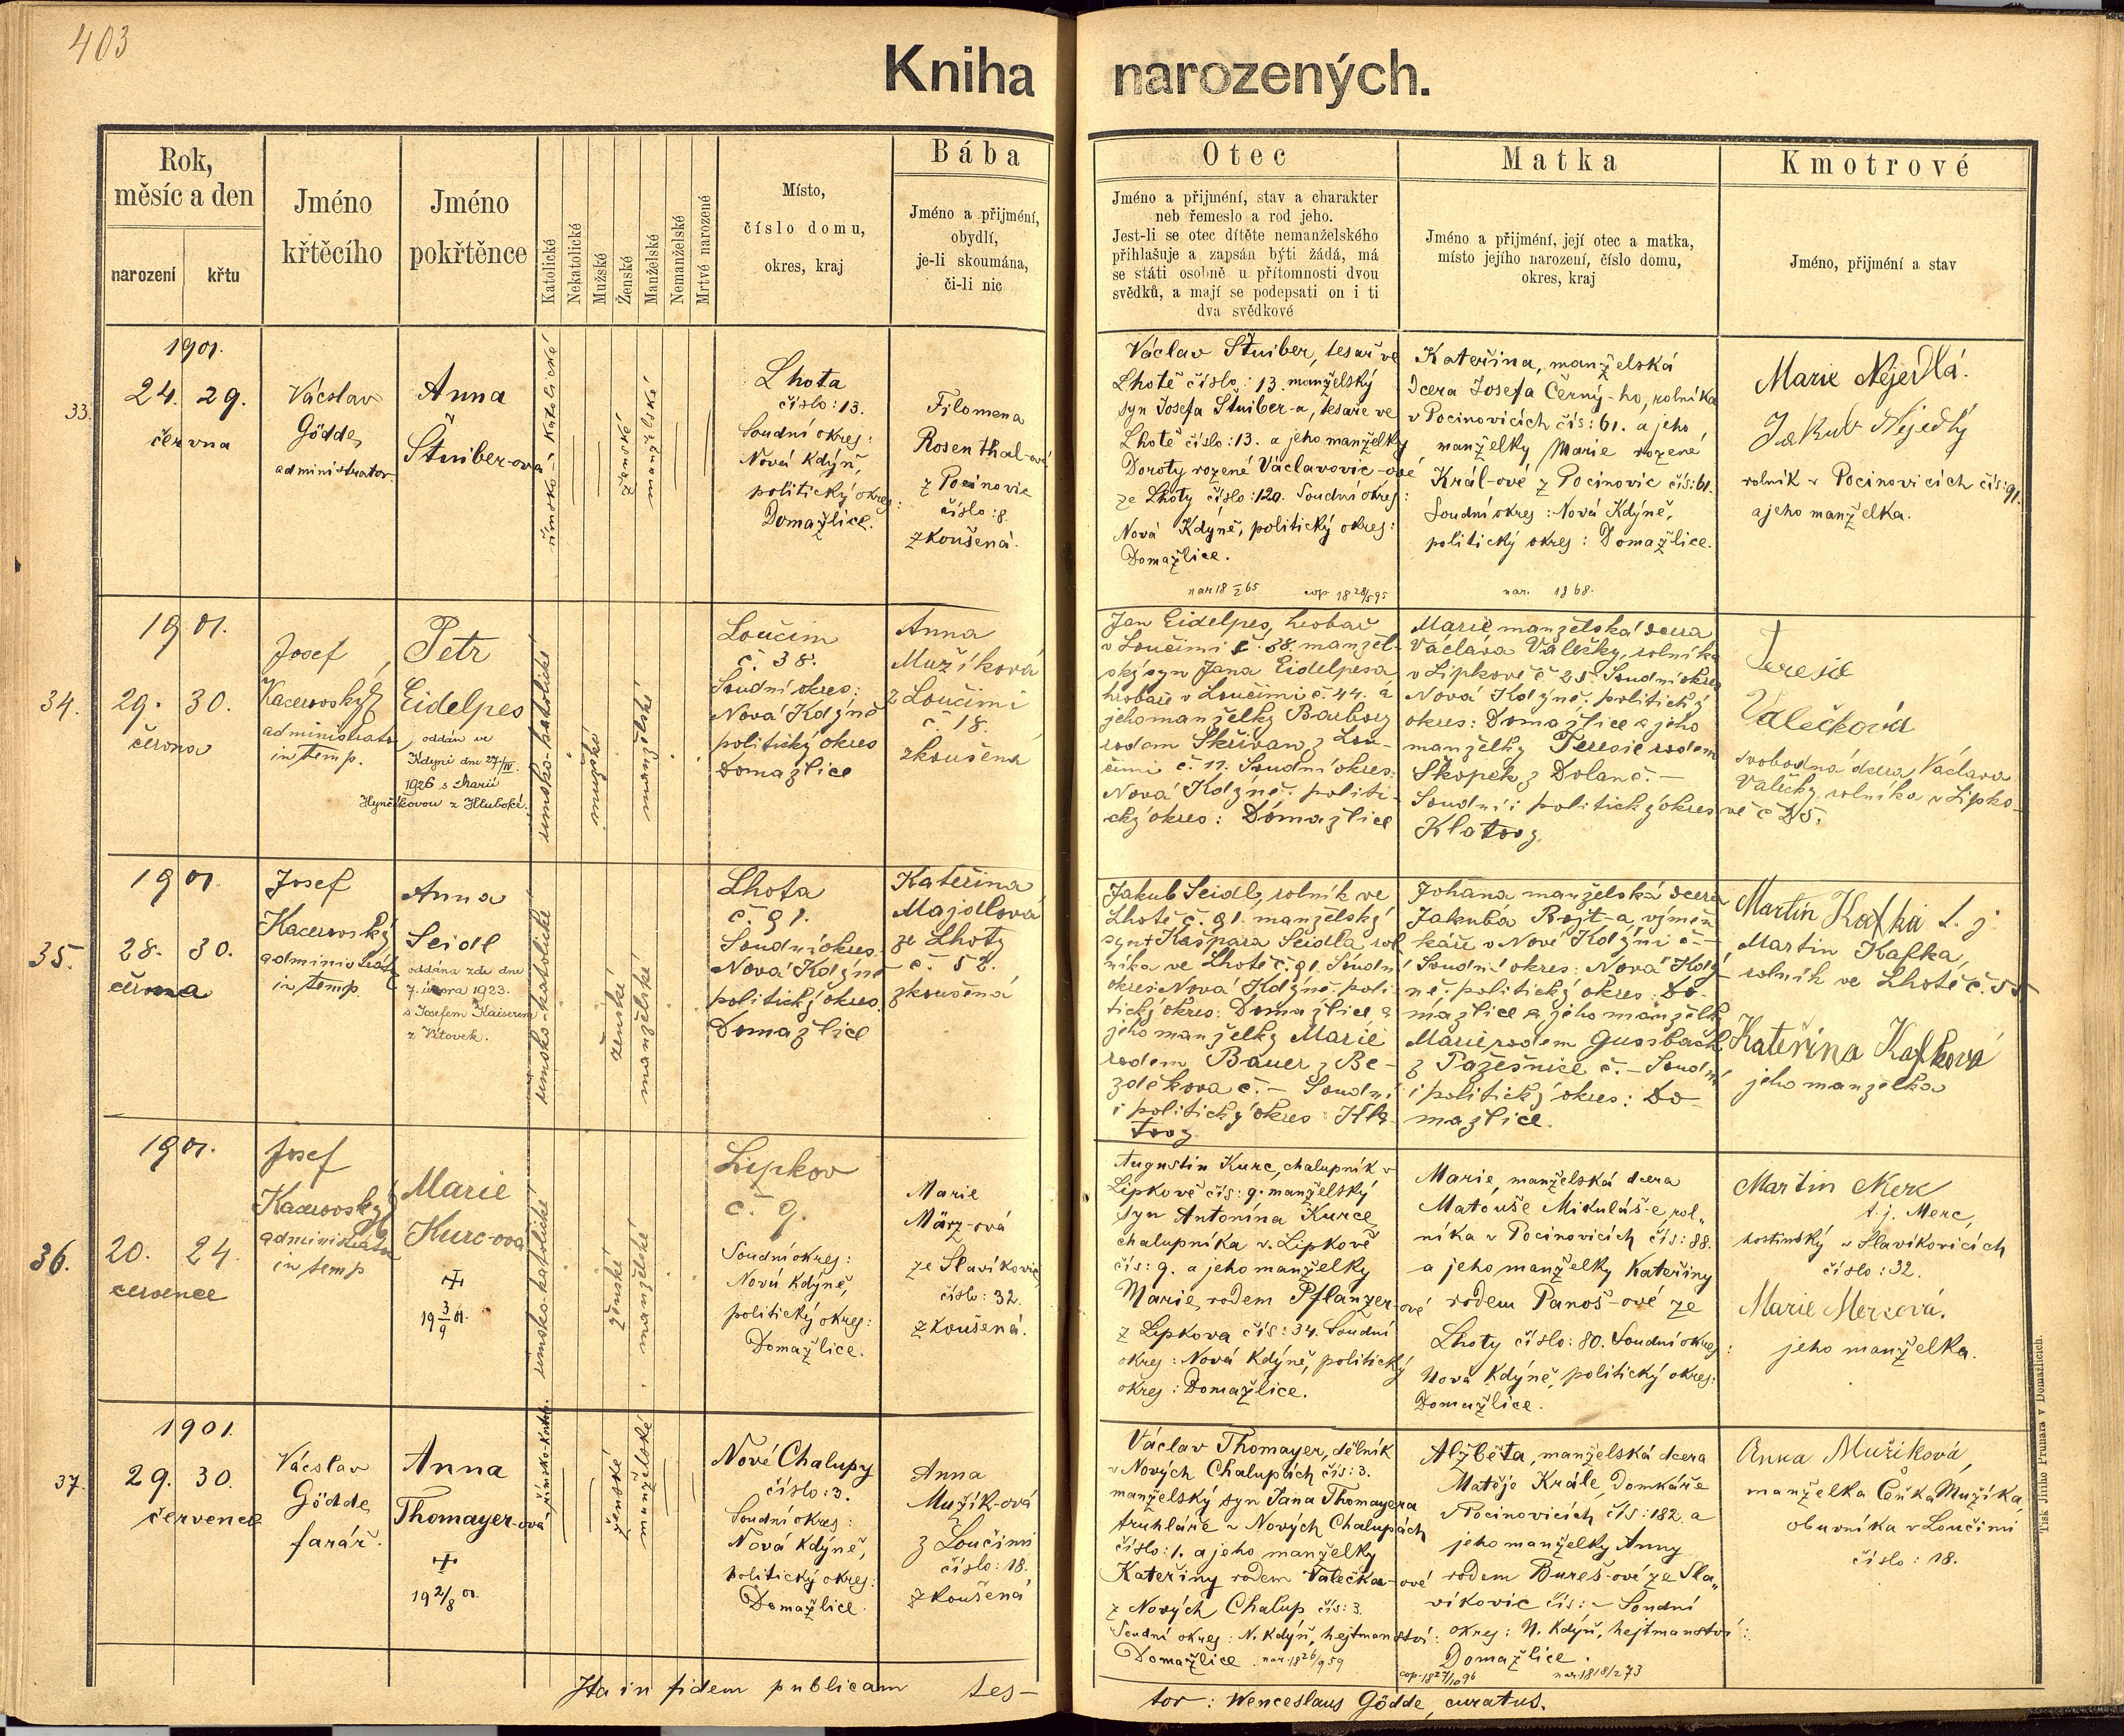 403
Kniha narozených.
Rok,
měsíc a den
narození
křtu
Jméno
křtěcího
Jméno
pokřtěnce
Katolické
Nekatolické
Mužské
Ženské
Manželské
Nemanželské
Mrtvě narozené
Místo,
číslo domu,
okres, kraj
Bába
Jméno a přijmení,
obydlí,
je-li skoumána,
či-li nic
Otec
Jméno a přijmení, stav a charakter
neb řemeslo a rod jeho.
Jest-li se otec dítěte nemanželského
přihlašuje a zapsán býti žádá, má
se státi osobně u přítomnosti dvou
svědků, a mají se podepsati on i ti
dva svědkové
Matka
Jméno a přijmení, její otec a matka,
místo jejího narození, číslo domu,
okres, kraj
Kmotrové
Jméno, přijmení a stav
33.
1901.
24. 29.
června
Vácslav
Gödde,
administrator
Anna
Štuiber-ová
římsko-katolické
ženské
manželské
Lhota
číslo: 13.
Soudní okres:
Nová Kdýň,
politický okres:
Domažlice.
Filomena
Rosenthal-ová
z Pocinovic
číslo: 8.
zkoušená.
Václav Štuiber, tesař ve
Lhotě číslo: 13. manželský
syn Josefa Štuiber-a, tesaře ve
Lhotě číslo: 13. a jeho manželky
Doroty rozené Václavovic-ové
ze Lhoty číslo: 120. Soudní okres:
Nová Kdýně, politický okres:
Domažlice.
Kateřina, manželská
dcera Josefa Černý-ho, rolníka
v Pocinovicích čís: 61. a jeho
manželky Marie rozené
Král-ové z Pocinovic čís: 61.
Soudní okres: Nová Kdýně,
politický okres: Domažlice.
nar. 1868.
Marie Nejedlá.
Jakub Nejedlý
rolník v Pocinovicích čís: 91.
a jeho manželka.
34.
1901.
29. 30.
června
Josef
Kacerovský
administrátor
in temp.
Petr
Eidelpes
oddán ve
Kdyni dne 27/IV.
1926 s Marií
Hynčíkovou z Hluboké.
římsko-katolické
mužské
manželské
Loučim
č. 38.
Soudní okres:
Nová Kdýně
politický okres
Domažlice
Anna
Mužíková
z Loučimi
č 18.
zkoušená
Jan Eidelpes, hrobař
v Loučimi č. 38. manžel-
ský syn Jana Eidelpesa
hrobaře v Loučimi č. 44. a
jeho manželky Barbory
rodem Skřivan z Lou-
čimi č. 11. Soudní okres:
Nová Kdýně. politi-
cký okres: Domažlice
Marie manželská dcera
Václava Valečky, rolníka
v Lipkově č 25. Soudní okres
Nová Kdýně. politický
okres: Domažlice a jeho
manželky Teresie rodem
Skopek z Dolan č. –
Soudní i politický okres
Klatovy
Teresie
Valečková
svobodná dcera Václava
Valečky, rolníka v Lipko-
vě č 25.
35.
1901
28. 30.
června
Josef
Kacerovský
administrátor
in temp.
Anna
Seidl
oddána zde dne
7. února 1923.
s Josefem Kaiserem
římsko-katolické
ženské
manželské
Lhota
č. 91.
Soudní okres.
Nová Kdýně
politický okres.
Domažlice
Kateřina
Majdlová
ze Lhoty
č. 52.
zkoušená
Jakub Seidl, rolník ve
Lhotě č. 91. manželský
syn † Kašpara Seidla rol
níka ve Lhotě č. 91. Soudní
okres: Nová Kdýně. poli-
tický okres: Domažlice a
jeho manželky Marie
rodem Bauer z Be-
zděkova č. – Soudní
i politický okres: Kla-
tovy
Johana manželská dcera
Jakuba Rojt-a, výměn
káře v Nové Kdýni č. –
Soudní okres: Nová Kdý-
ně. politický okres: Do-
mažlice a jeho manželky
Marie rodem Gussbach
z Pasečnice č. – Soudní
i politický okres: Do-
mažlice.
Martin Kafka t. j.
Martin Kafka,
rolník ve Lhotě č. 55
Kateřina Kafková
jeho manželka
36.
1901.
20. 24.
července
Josef
Kacerovský
administrátor
in temp
Marie
Kurc-ová
✝
19 3/9 01.
římsko-katolické
ženské
manželské
Lipkov
č. 9.
Soudní okres:
Nová Kdýně,
politický okres:
Domažlice.
Marie
März-ová
ze Slavíkovic
číslo: 32.
zkoušená.
Augustin Kurc, chalupník v
Lipkově čís: 9. manželský
syn Antonína Kurce,
chalupníka v. Lipkově
čís: 9. a jeho manželky
Marie, rodem Pflanzer-ové
z Lipkova čís: 34. Soudní
okres: Nová Kdýně, politický
okres: Domažlice.
Marie, manželská dcera
Matouše Mikuláš-e, rol„
níka v Pocinovicích čís: 88.
a jeho manželky Kateřiny
rodem Panoš-ové ze
Lhoty číslo: 80. Soudní okres:
Nová Kdýně, politický okres:
Domažlice.
Martin Merc
t. j. Merc,
hostinský v Slavíkovicích
číslo: 32.
Marie Mercová.
jeho manželka.
37.
1901.
29. 30.
července
Vácslav
Gödde,
farář.
Anna
Thomayer-ová
✝
19 2/8 01.
římsko-kato.
ženské
manželské
Nové Chalupy
číslo: 3.
Soudní okres:
Nová Kdýně,
politický okres:
Domažlice.
Anna
Mužík-ová
z Loučimi
číslo: 18.
zkoušená
Václav Thomayer, dělník
v Nových Chalupách čís: 3.
manželský syn Jana Thomayera
truhláře v Nových Chalupách
číslo: 1. a jeho manželky
Kateřiny rodem Valečka-ové
z Nových Chalup čís: 3.
Soudní okres: N. Kdýň, hejtmanství:
Domažlice. nar. 18 26/9 59
Alžběta, manželská dcera
Matěje Krále, Domkáře
v Pocinovicích čís: 182. a
jeho manželky Anny
rodem Bureš-ové ze Sla„
víkovic čís: – Soudní
okres: N. Kdýň, hejtmanství:
Domažlice.
cop. 18 27/10 96 nar. 18 18/2 73
Anna Mužíková,
manželka Čeňka Mužíka,
obuvníka v Loučimi
číslo: 18.
Ita in fidem publicam tes-
tor: Wenceslaus Gödde, curatus.
Tisk Jiřího Prunara v Domažlicích.